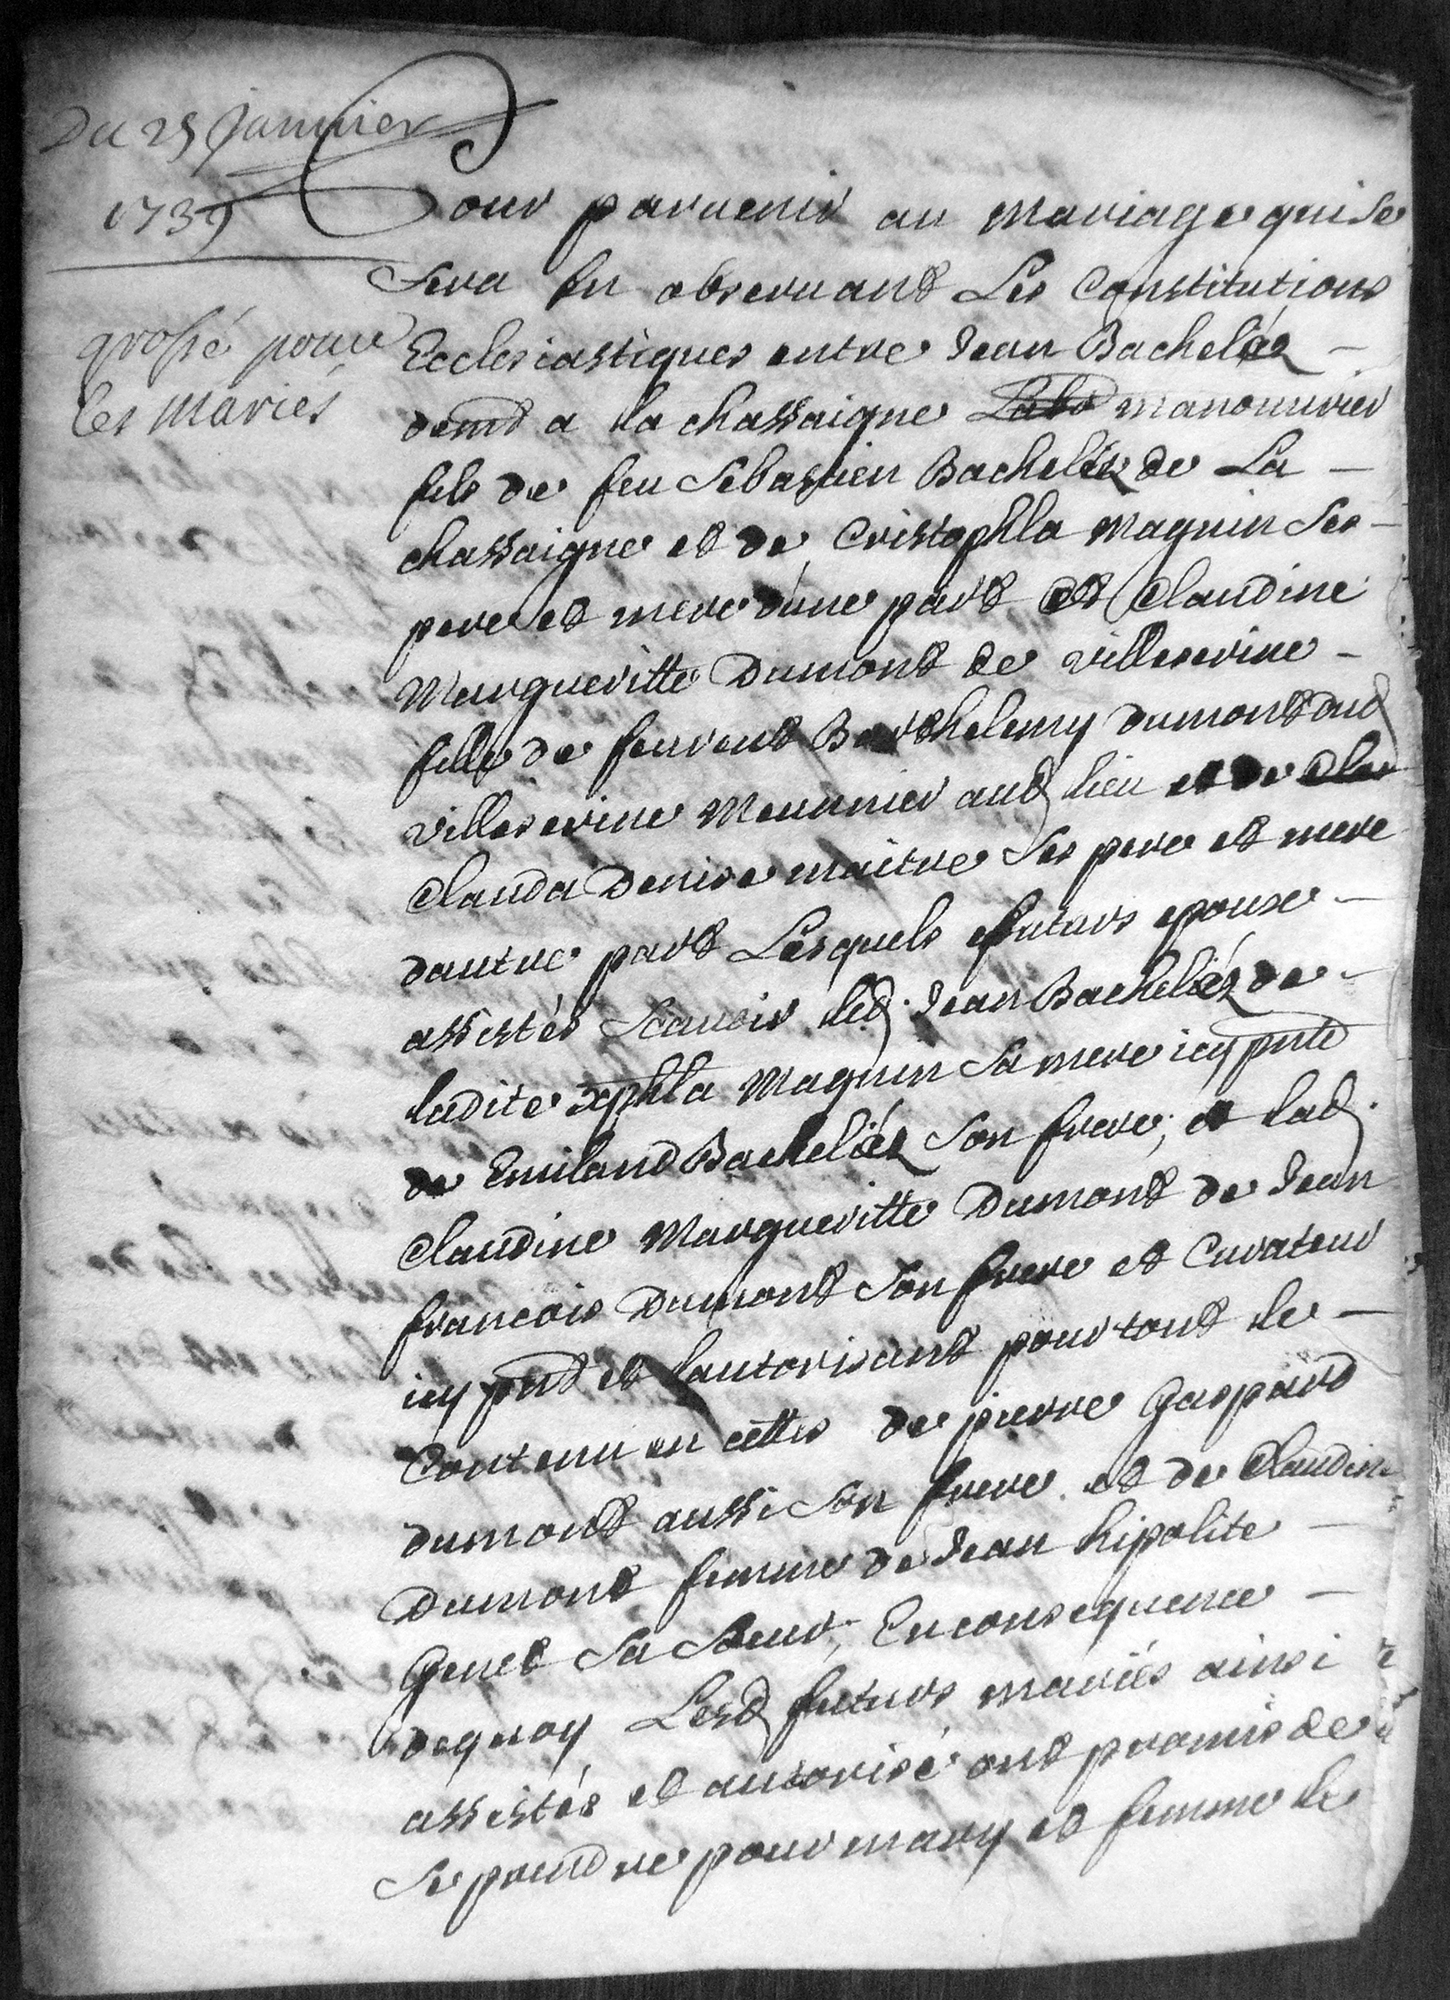 Du 25 Janvier
1739
grossé pour
les mariés
Pour parvenir au mariage qui se
sera en observant Les Constitutions
Ecclesiastiques entre Jean Bacheliér
demt a la chassaigne Labr manouvrier
fils de feu Sebastien Bacheliér de La
chassaigne et de Cristophla Magnin ses
pere et mere d'une part Et Claudine
Margueritte Dumont de villeserine
fille de feu Barthelemy Dumont dud
villeserine Meunnier aud lieu et de Cla
Clauda Denise maitre ses pere et mere
dautre part Lesquels futurs epoux
assistés Scavoir led Jean Bacheliér de
ladite xphla Magnin sa mere icy pnte
de Emiland Bacheliér son frere, et lad
Claudine Margueritte Dumont de Jean
francois Dumont son frere et Curateur
icy pnt et lautorisant pour tout le
Contenu en cettes de pierre Gaspard
dumont aussi son frere et de Claudine
Dumont femme de Jean hipolite
Genet sa Soeur, En consequence
dequoy Lesd futurs mariés ainsi
assistés et autorisé ont promis de
se prendre pour mary et femme le